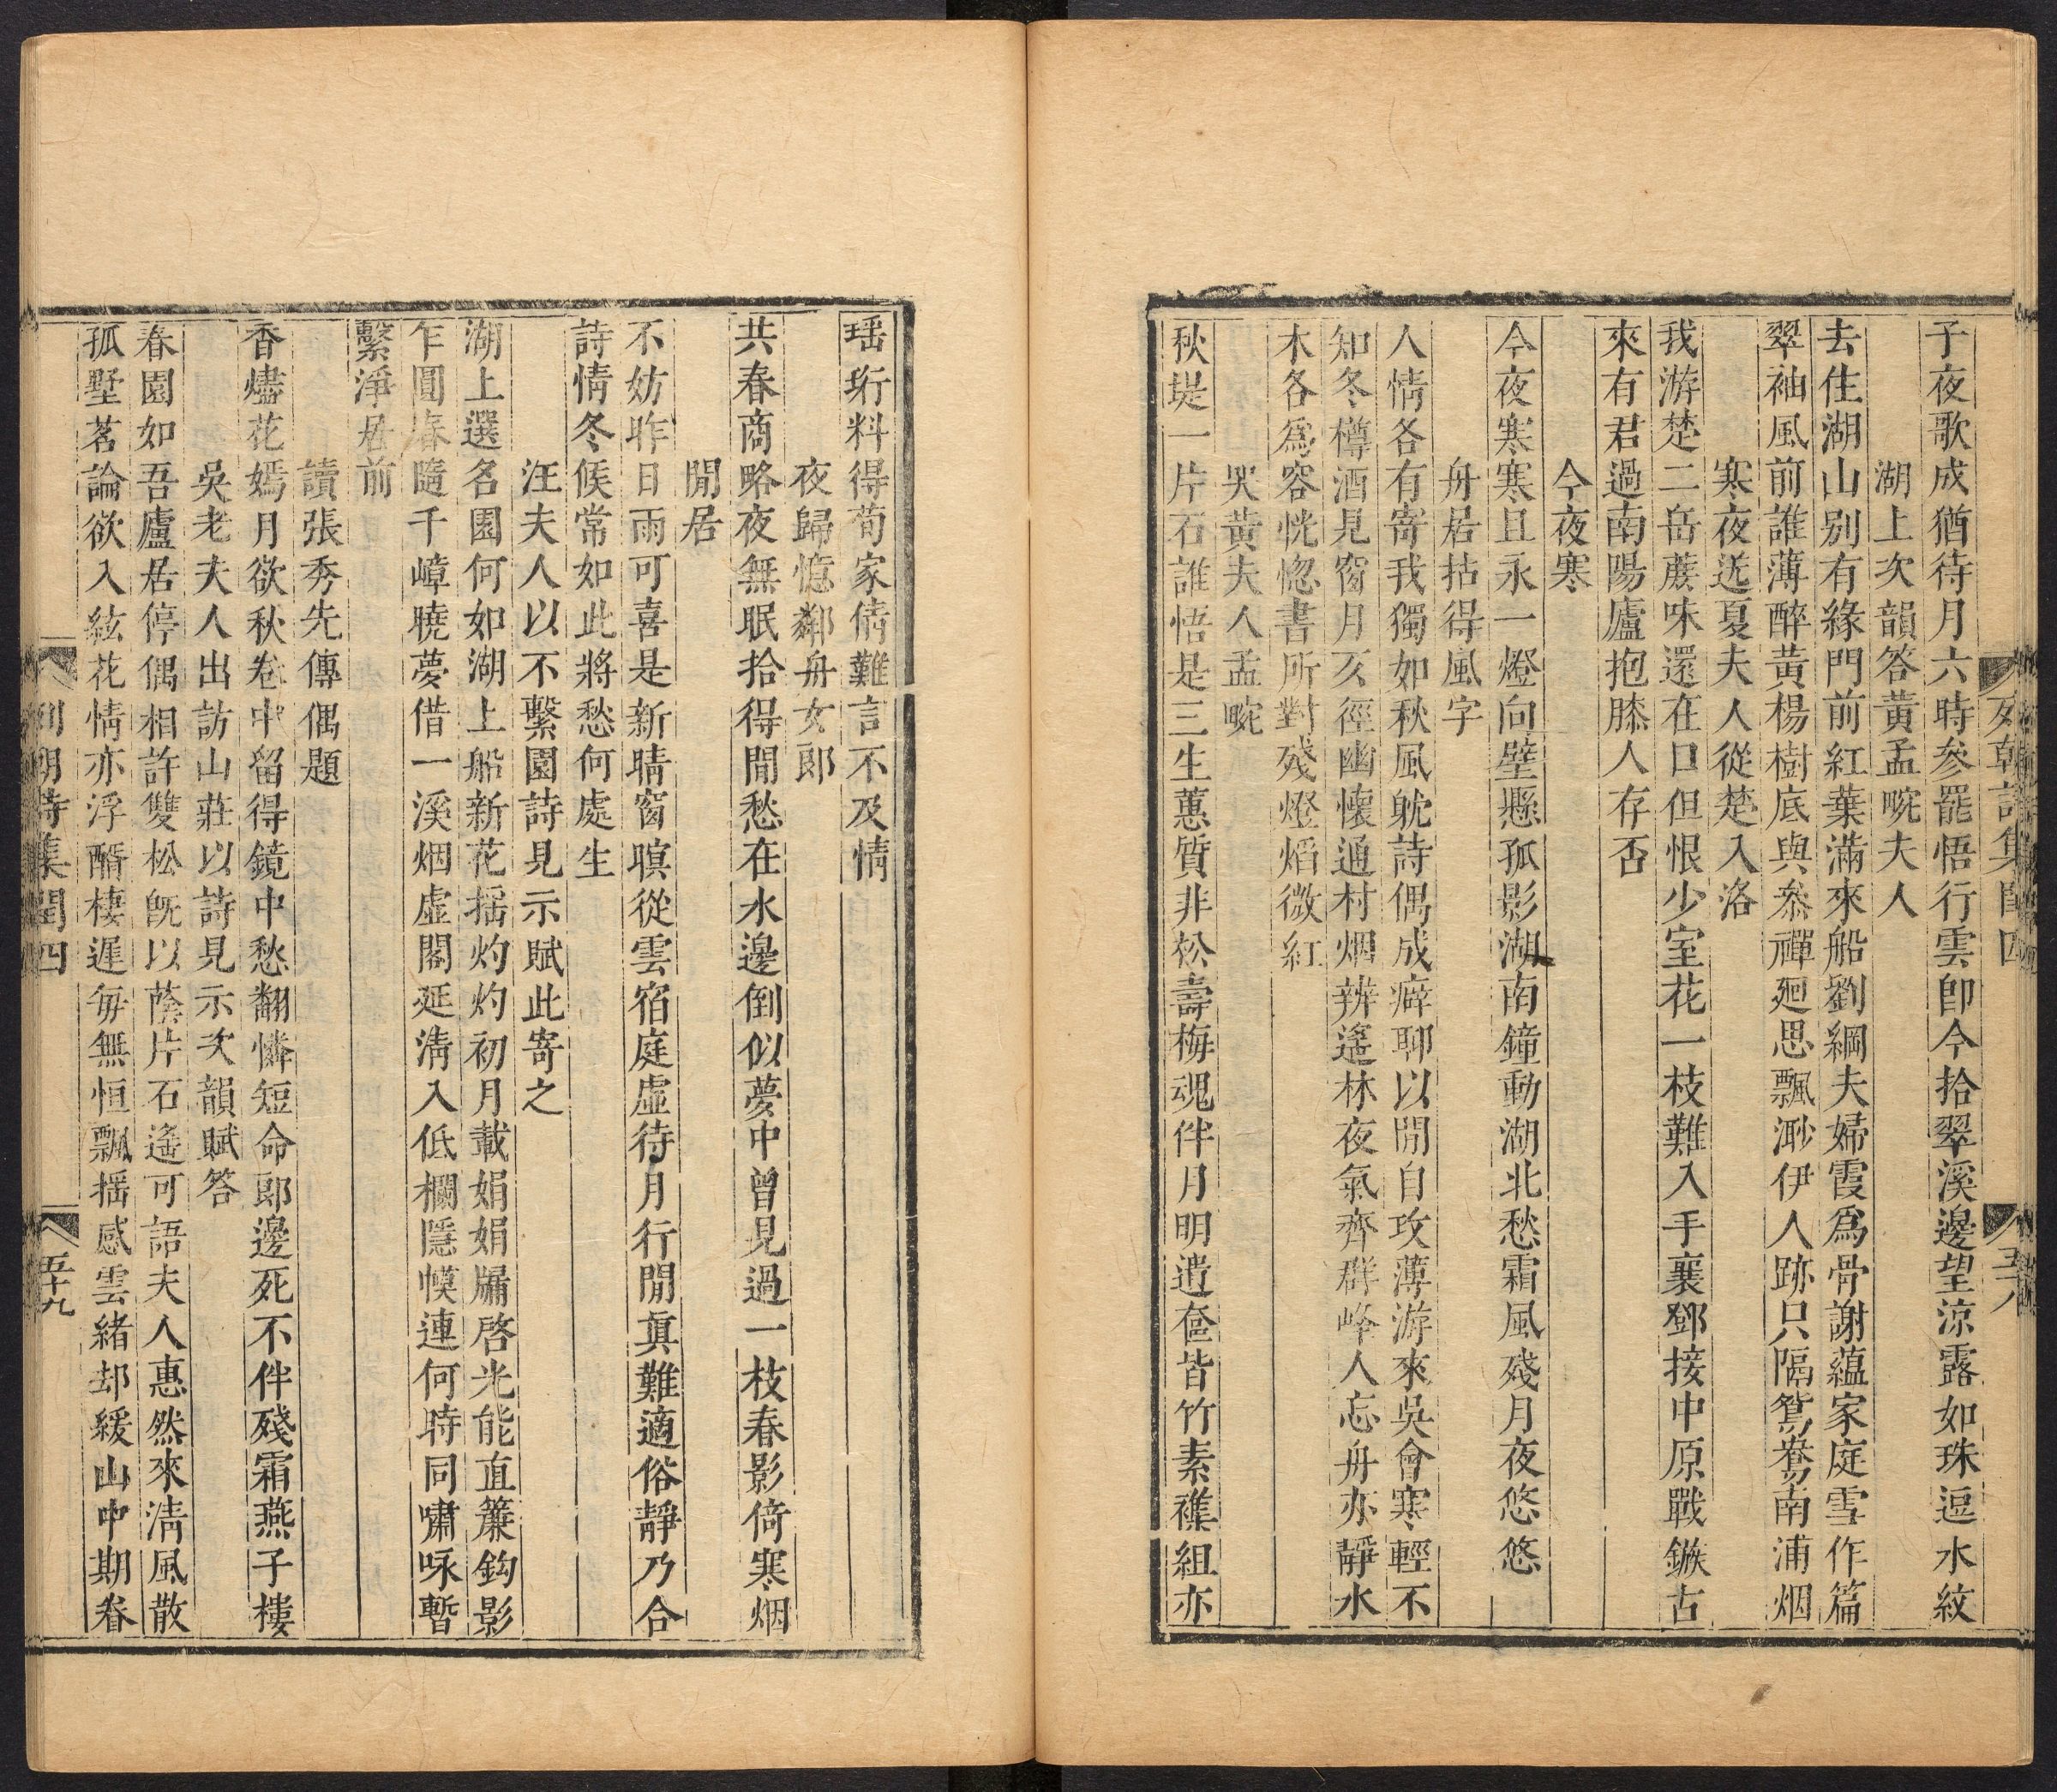 子夜歌成猶待月六時參罷悟行雲卽今拾翠溪邊望涼露如珠逗水紋
湖上次韻答黃孟畹夫人
去住湖山別有緣門前紅葉滿來船劉綱夫婦霞爲骨謝蘊家庭雪作篇
翠袖風前誰薄醉黃楊樹底與叅禪廻思飄渺伊人跡只隔鴛鴦南浦烟
寒夜送夏夫人從楚入洛
我游楚二嵒蔗味還在口但恨少室花一枝難入手襄鄧接中原戰鏃古
來有君過南陽廬抱膝人存否
今夜寒
今夜寒寒且永一燈向壁懸孤影湖南鐘動湖北愁霜風殘月夜悠悠
舟居拈得風字
人情各有寄我獨如秋風躭詩偶成癖聊以閒自攻薄游來吳會寒輕不
知冬樽酒見窗月亥徑幽懷通村烟辨遙林夜氣齊群峰人忘舟亦靜水
木各爲容恍惚書所對殘燈焰微紅
哭黃夫人孟畹
秋堤一片石誰悟是三生蕙質非松壽梅魂伴月明遺奩皆竹素襍組亦
列朝詩集閏四
五十八
瑶珩料得荀家倩難言不及情
夜歸憶鄰舟女郎
共春商略夜無眠拾得閒愁在水邊倒似夢中曾見過一枝春影倚寒烟
閒居
不妨昨日雨可喜是新晴窗暝從雲宿庭虛待月行閒眞難適俗靜乃合
詩情冬候常如此將愁何處生
汪夫人以不繫園詩見示賦此寄之
湖上選名園何如湖上船新花搖灼灼初月載娟娟牖啓光能直簾鈎影
乍圓春隨千嶂曉夢借一溪烟虛閣延清入低欄隱幙連何時同嘯咏暫
繫淨居前
讀張秀先傳偶題
香燼花嫣月欲秋卷中留得鏡中愁翻憐短命郞邊死不伴殘霜燕子樓
吳老夫人出訪山莊以詩見示次韻賦答
春園如吾廬居停偶相許雙松旣以蔭片石遙可語夫人惠然來清風散
孤墅茗論欲入絃花情亦浮醑棲遲每無恒飄揺感雲緒却緩山中期眷
列朝詩集閏四
五十九